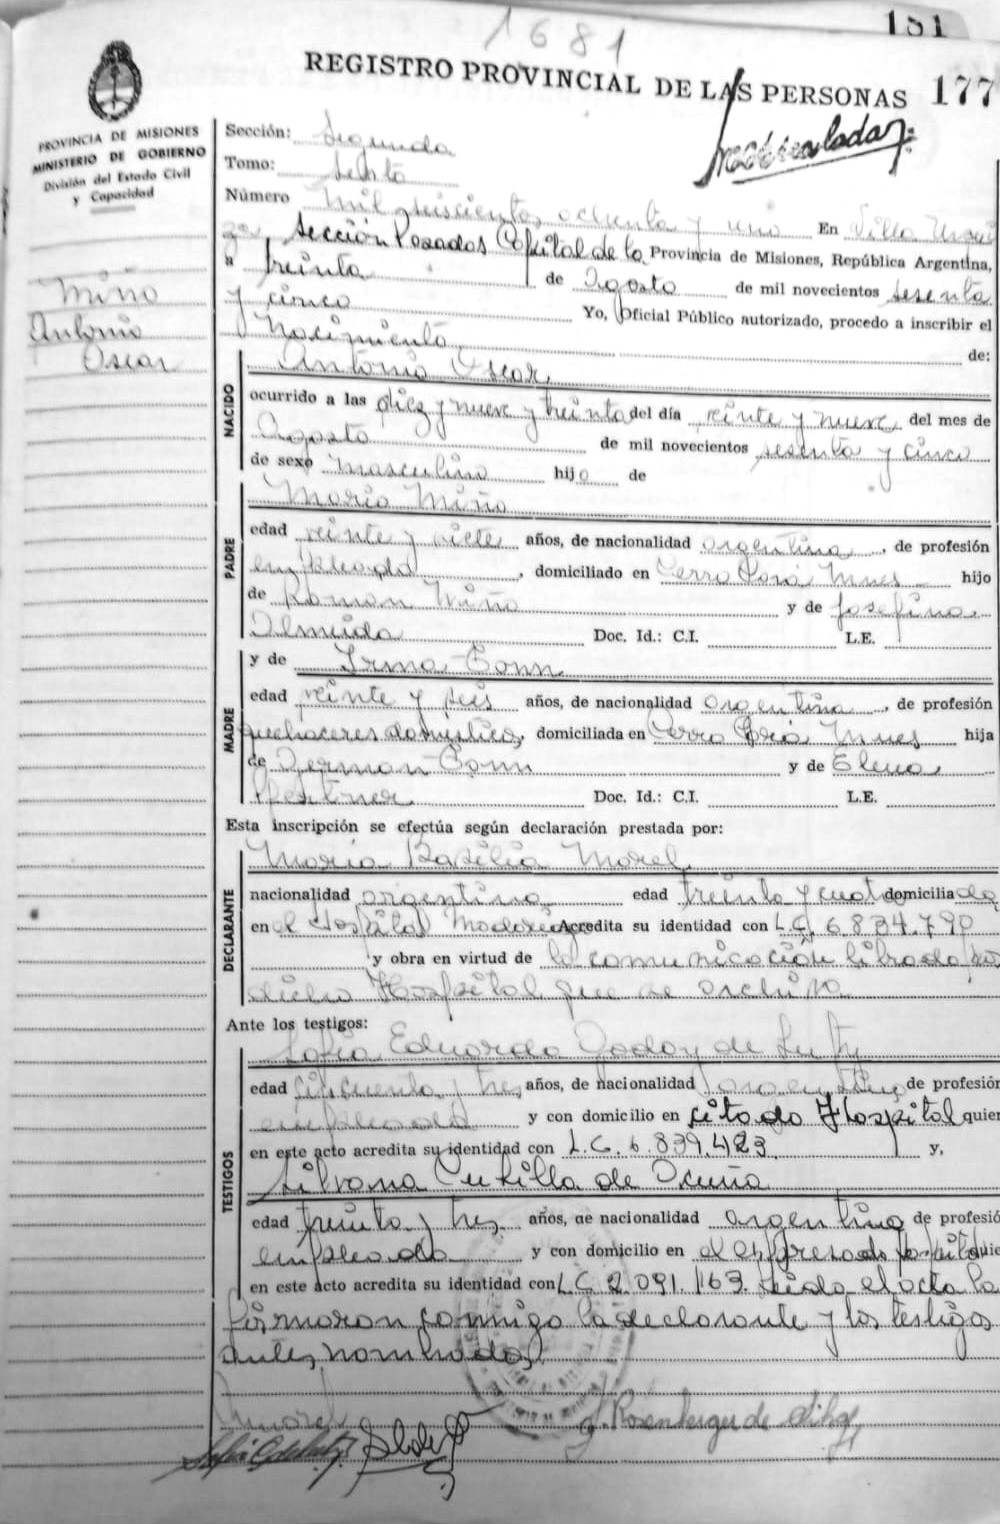 1681
151
REGISTRO PROVINCIAL DE LAS PERSONAS 177
PROVINCIA DE MISIONES
MINISTERIO DE GOBIERNO
División del Estado Civil
y Capacidad
Miño
Antonio
Oscar
Sección: Segunda
Tomo: Sexto
Número mil seiscientos ochenta y uno En Villa
Sección Posadas Capital de la Provincia de Misiones, República Argentina,
a treinta de Agosto de mil novecientos sesenta
y cinco Yo, Oficial Público autorizado, procedo a inscribir el
Nacimiento de:
NACIDO
Antonio Oscar
ocurrido a las diez y nueve y treinta del día veinte y nueve del mes de
Agosto de mil novecientos sesenta y cinco
de sexo masculino hijo de
PADRE
Mario Miño
edad veinte y siete años, de nacionalidad argentina, de profesión
empleado, domiciliado en Cerro Corá Mnes hijo
de Ramon Miño y de Josefina
Almeida Doc. Id.: C.I. L.E.
MADRE
y de Irma Conn
edad veinte y seis años, de nacionalidad argentina, de profesión
quehaceres domésticos, domiciliada en Cerro Corá Mnes hija
de German Conn y de Elena
Doc. Id.: C.I. L.E.
Esta inscripción se efectúa según declaración prestada por:
DECLARANTE
María Basilia Morel
nacionalidad argentina edad treinta y cuatro domiciliada
en el Hospital Madariaga Acredita su identidad con L.C. 6.834.790
y obra en virtud de la comunicación librada por
dicho Hospital que se archiva
Ante los testigos:
TESTIGOS
Sofia Eduarda Godoy de
edad cincuenta y tres años, de nacionalidad argentina de profesión
empleada y con domicilio en citado Hospital quien
en este acto acredita su identidad con L.C. 6.839.423 y,
Silvana Cutilla de Acuña
edad treinta y tres años, de nacionalidad argentina de profesió
empleada y con domicilio en el expresado Hospital quie
en este acto acredita su identidad con L.C 2.091.163. Leída el acta la
firmaron conmigo la declarante y los testigos
antes nombrados
AMorel
J. Rosenberger de